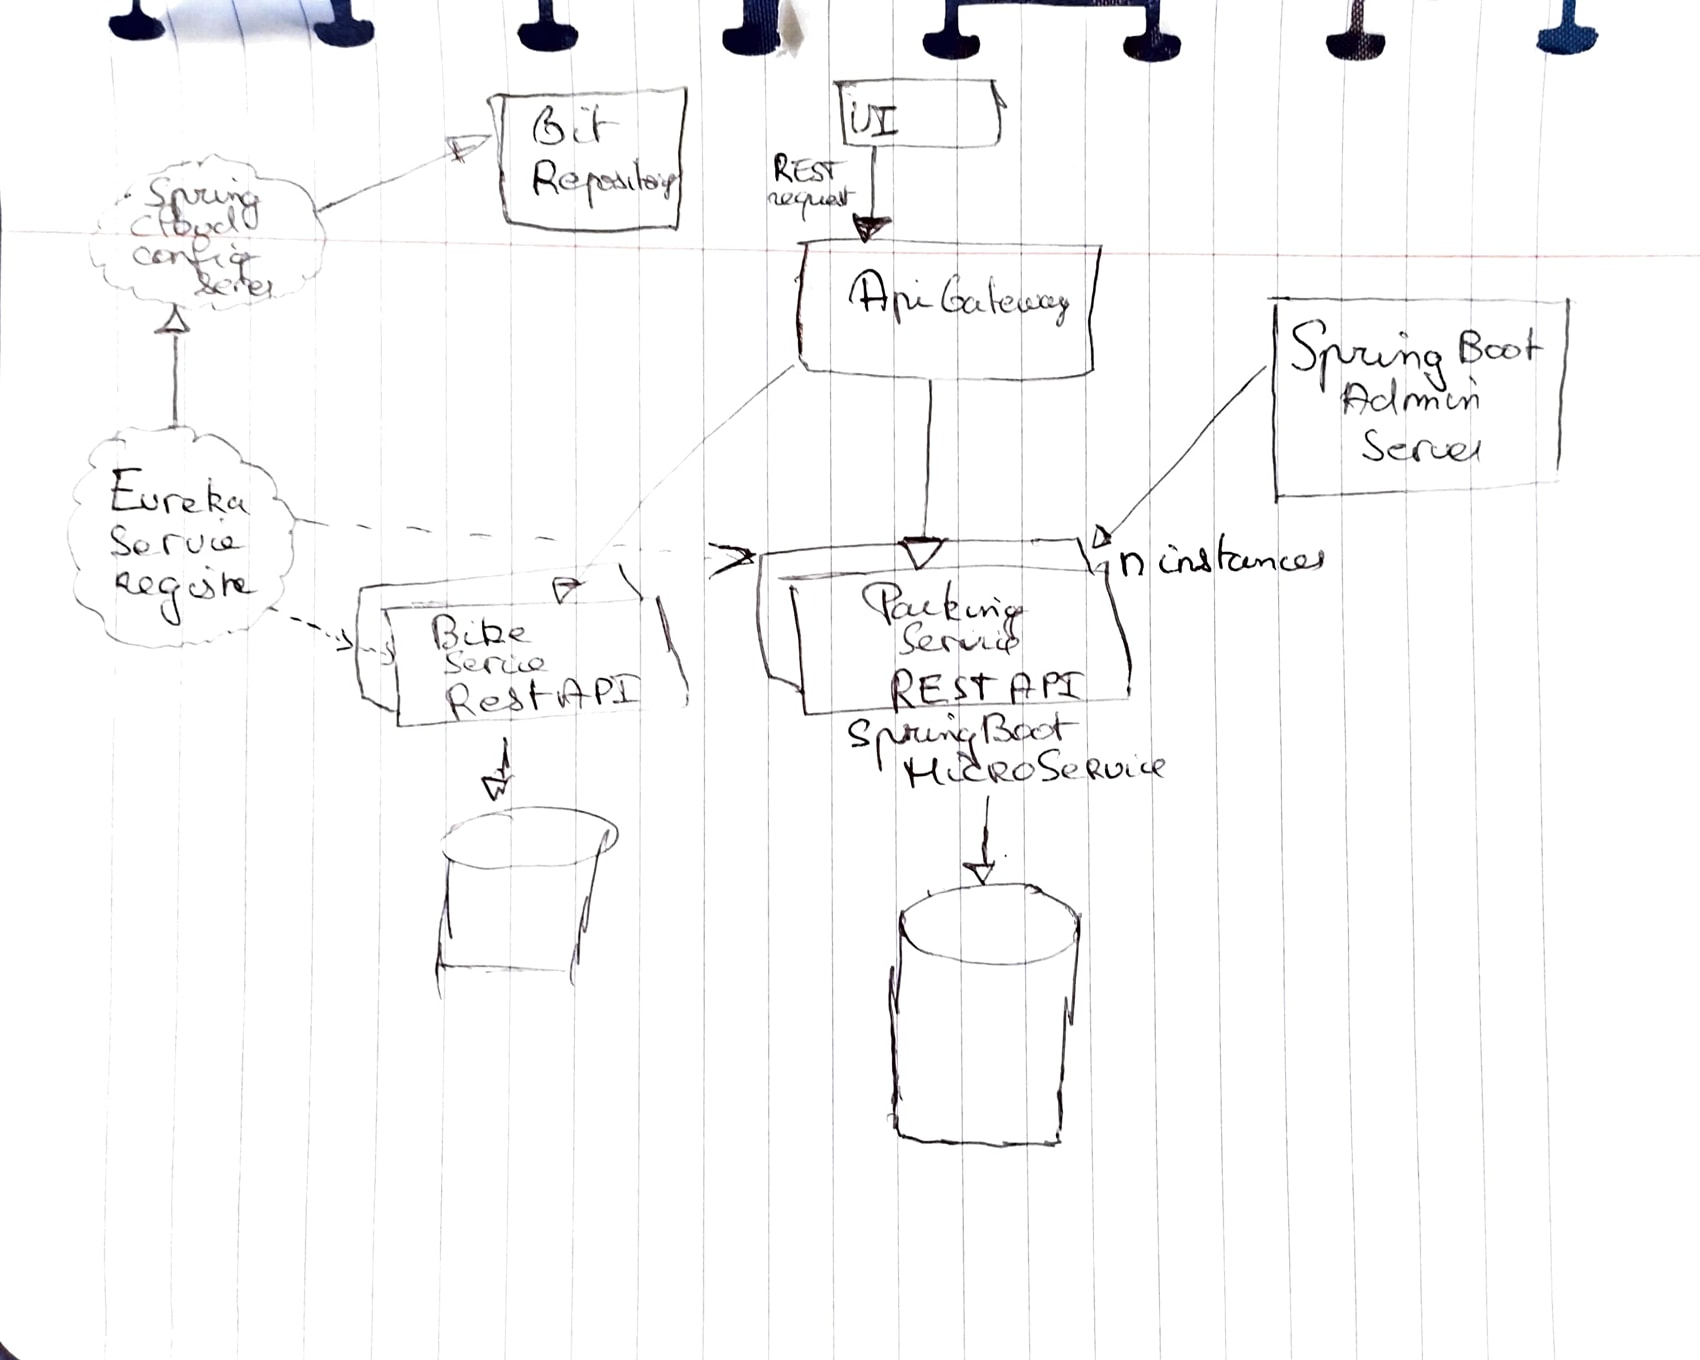 Bit
Repository
UI
REST
request
Spring
Cloud
config
Server
Api Gateway
Spring Boot
Admin
Server
Eureka
Service
registre
n instances
Bike
Service
Rest API
Parking
Service
REST API
Spring Boot
MICROService